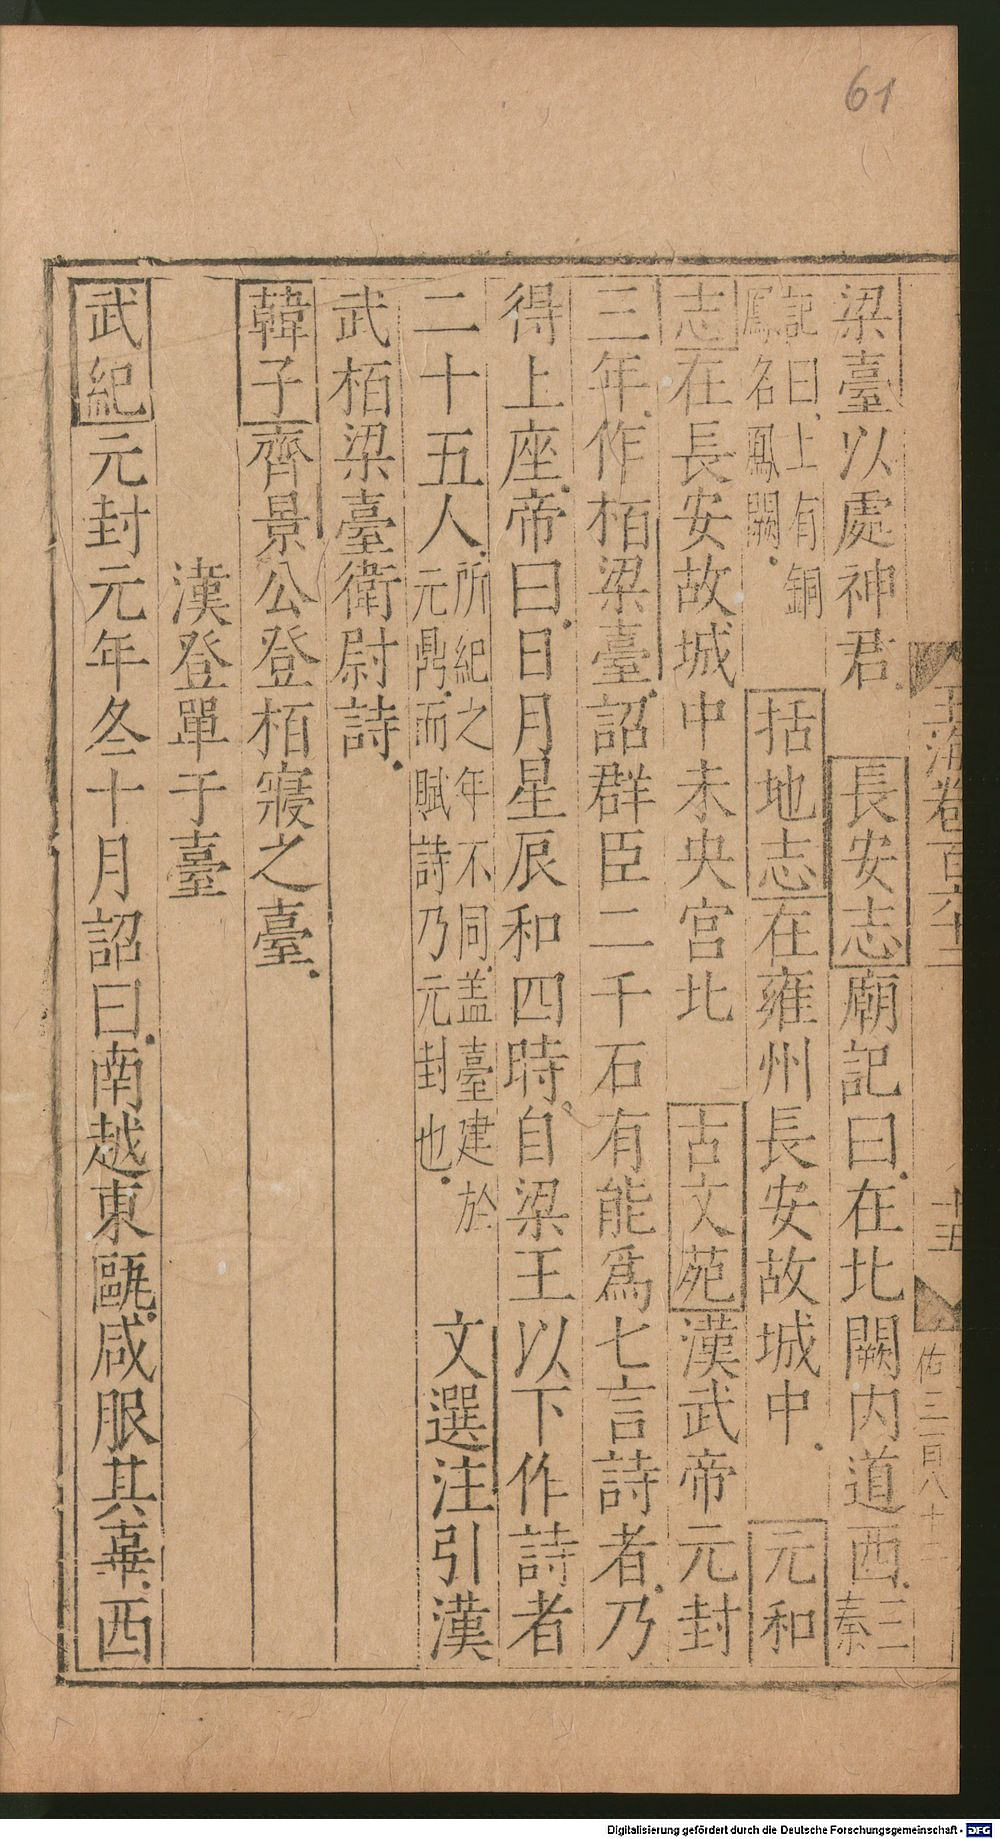 61
玉海卷百六十二
十五
佑三百八十二
梁臺以處神君　長安志廟記曰在北闕內道西三秦
記曰上有銅鳳名鳳闕　括地志在雍州長安故城中　元和
志在長安故城中未央宮北　古文苑漢武帝元封
三年作栢梁臺詔群臣二千石有能爲七言詩者乃
得上座帝曰日月星辰和四時自梁王以下作詩者
二十五人所紀之年不同蓋臺建於元鼎而賦詩乃元封也　文選注引漢
武栢梁臺衛尉詩
韓子齊景公登栢寢之臺
漢登單于臺
武紀元封元年冬十月詔曰南越東甌咸服其辜西
Digitalisierung gefördert durch die Deutsche Forschungsgemeinschaft - DFG